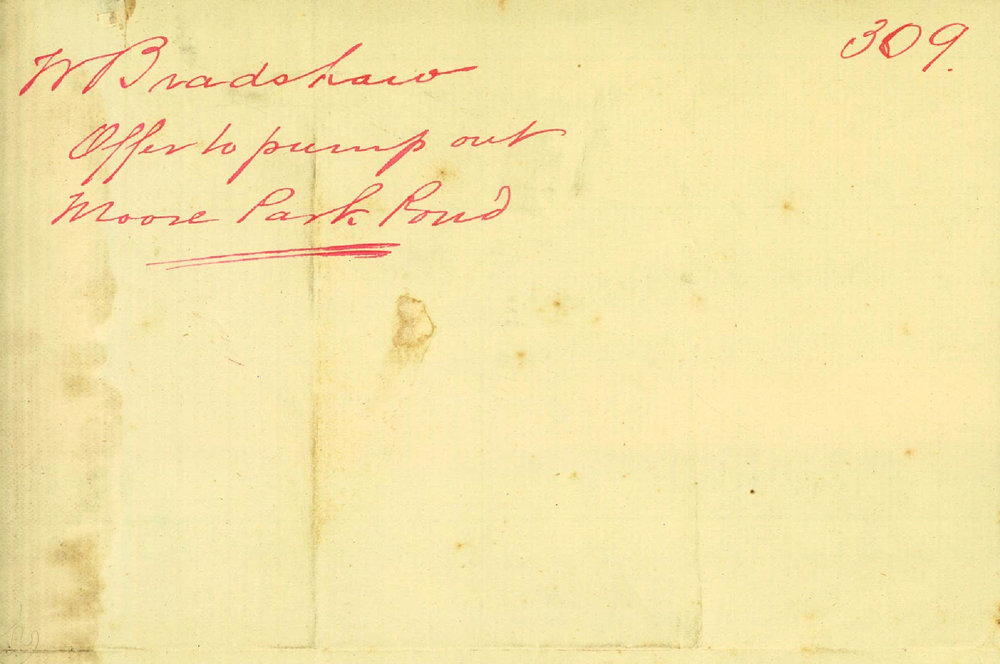 309.
W Bradshaw
Offer to pump out
Moore Park Pond